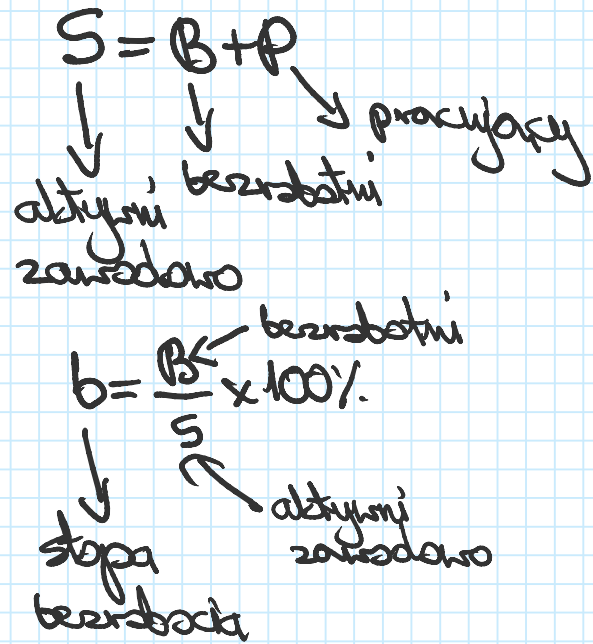 S = B + P
pracujący
bezrobotni
aktywni
zawodowo
bezrobotni
b = B/S x 100%
aktywni
zawodowo
stopa
bezrobocia